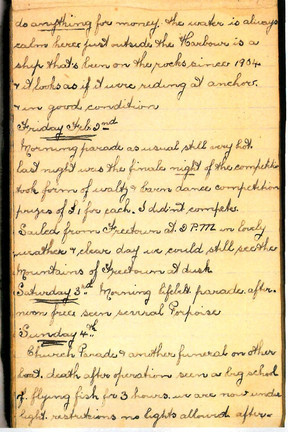 do anything for money. the water is always
calm here: just outside the Harbour is a
ship that's been on the rocks since 1904
& it looks as if it were riding at anchor.
& in good condition
Friday Feb 2nd
Morning parade as usual still very hot
last night was the finale night of the competition
took form of waltz & barn dance competition
prizes of £1 for each. I didn't compete.
Sailed from Freetown at 2 P.M in lovely
weather & clear day we could still see the
Mountains of Freetown at dusk
Saturday 3rd Morning lifebelt parade, after-
noon free seen several Porpoise
Sunday 4th
Church Parade & another funeral on other
boat, death after operation seen a big school
of flying fish for 3 hours. we are now under
light restrictions no lights allowed after-